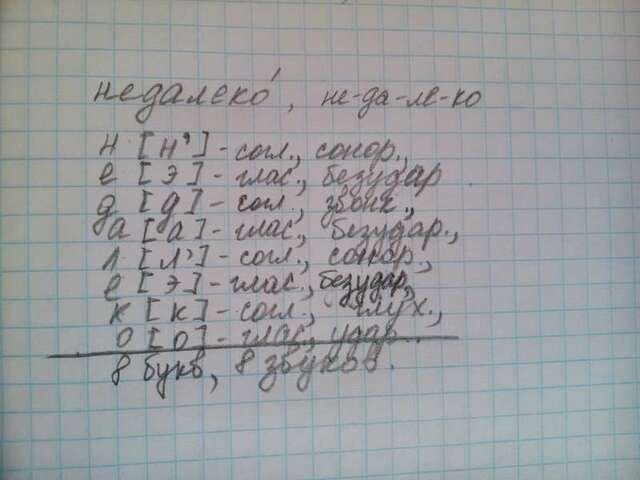 недалеко́, не-да-ле-ко
н [н'] - согл., сонор.,
е [э] - глас., безудар.
д [д] - согл., звонк.,
а [а] - глас., безудар.,
л [л'] - согл., сонор.,
е [э] - глас., безудар.,
к [к] - согл., глух.,
о [о] - глас., удар..
8 букв, 8 звуков.